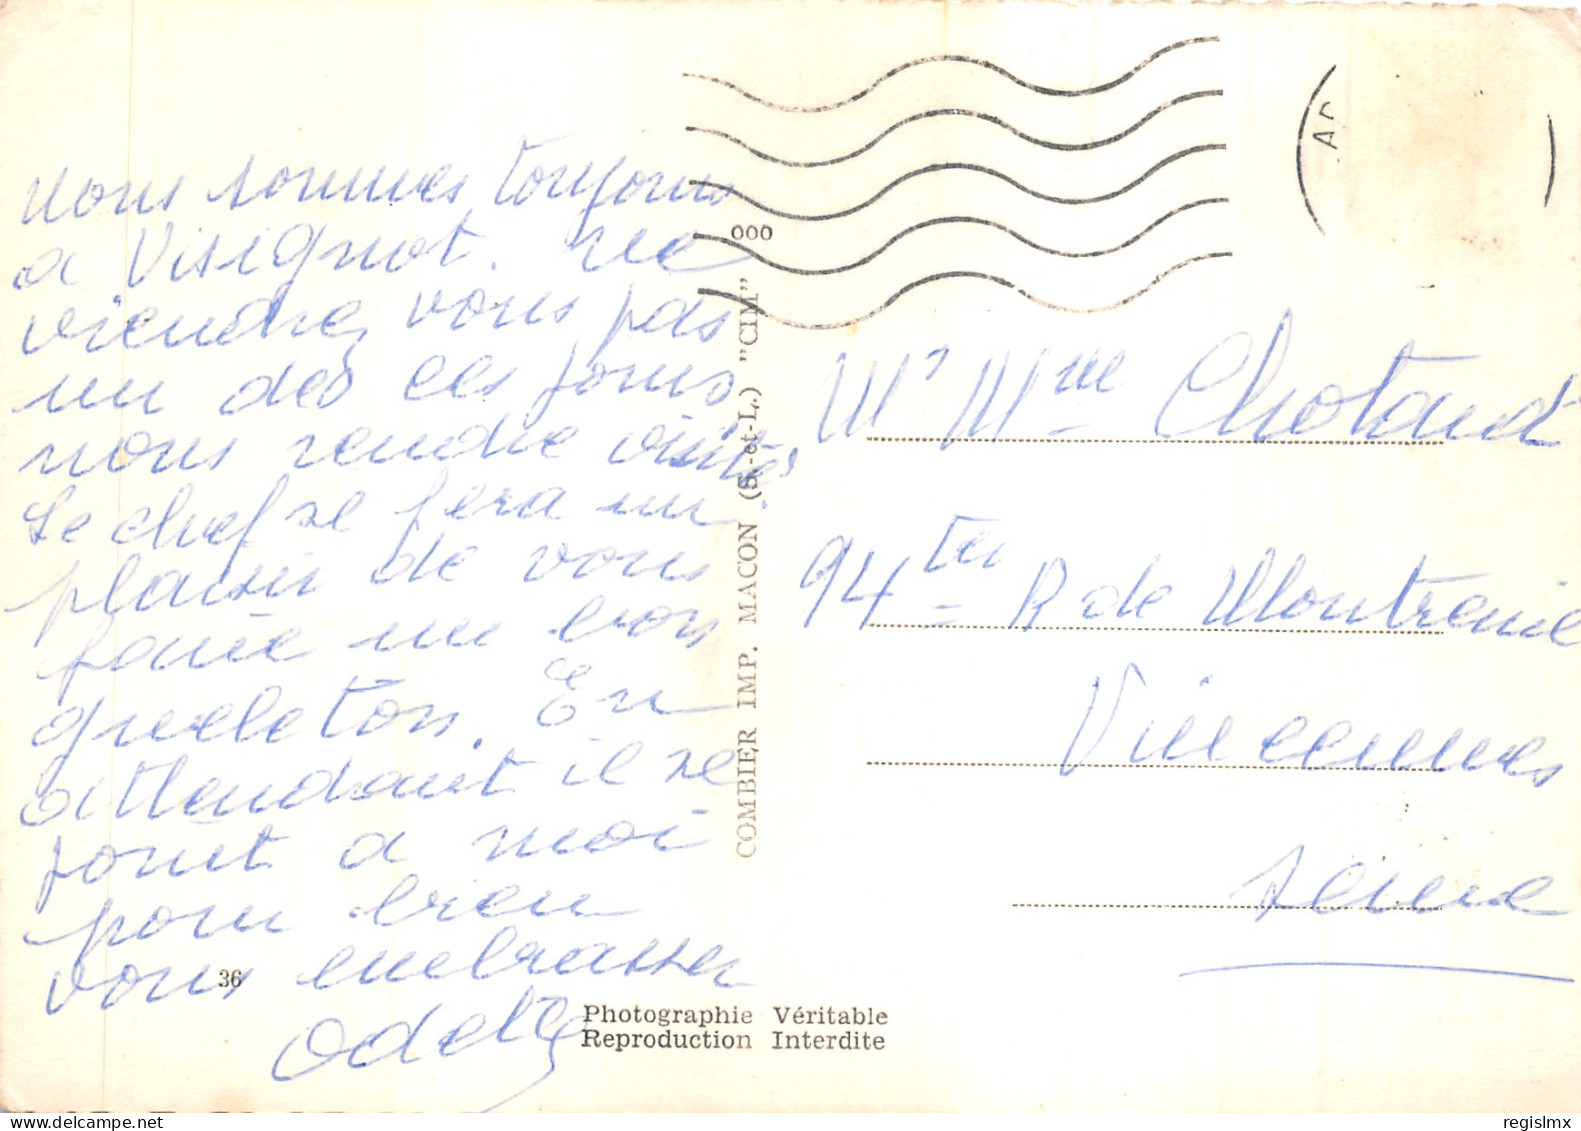 Nous sommes toujours
a Visignot. ne
viendrez vous pas
un des ces jours
nous rendre visite
Le chef se fera un
plaisir de vous
faire un bon
gueleton. En
attendant il se
joint a moi
pour bien
vous embrasser
Odette
36
000
COMBIER IMP. MACON (S.-et-L.) "CIM"
Photographie Véritable
Reproduction Interdite
Mr Mme Chotard
94 ter R de Montreuil
Vincennes
Seine
delcampe.net
regislmx